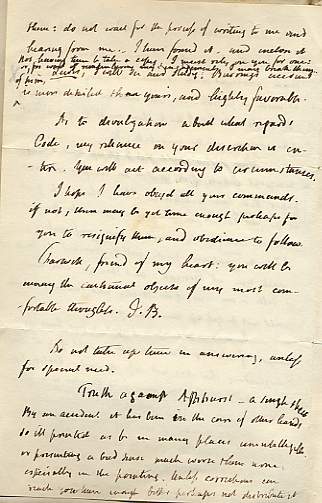 them: do not wait for the process of writing to me and
hearing from me. I have found it and inclose it
Not having time to take a copy, I must rely on you for one:
or for want of I may break
of him. duty, I will in and study. Burrough's account
is more detailed than yours, and highly favorable.
As to divulgation about what regards
Code, my reliance on your discretion is en-
tire. You will act according to circumstances.
I hope I have obeyed all your commands.
if not, there may be yet time enough perhaps for
you to resignify them, and obedience to follow.
Farewell, friend of my heart: you will be
among the continual objects of my most com-
fortable thoughts. J.B.
Do not take up time in answering, unless
for special need.
Truth against Ashhurst – a single sheet
By an accident it has been in the care of other hands,
so ill printed as to be in many places unintelligible
or presenting a bad sense much worse than none,
especially in the pointing. Unless corrections can
reach you time enough better perhaps not distribute it